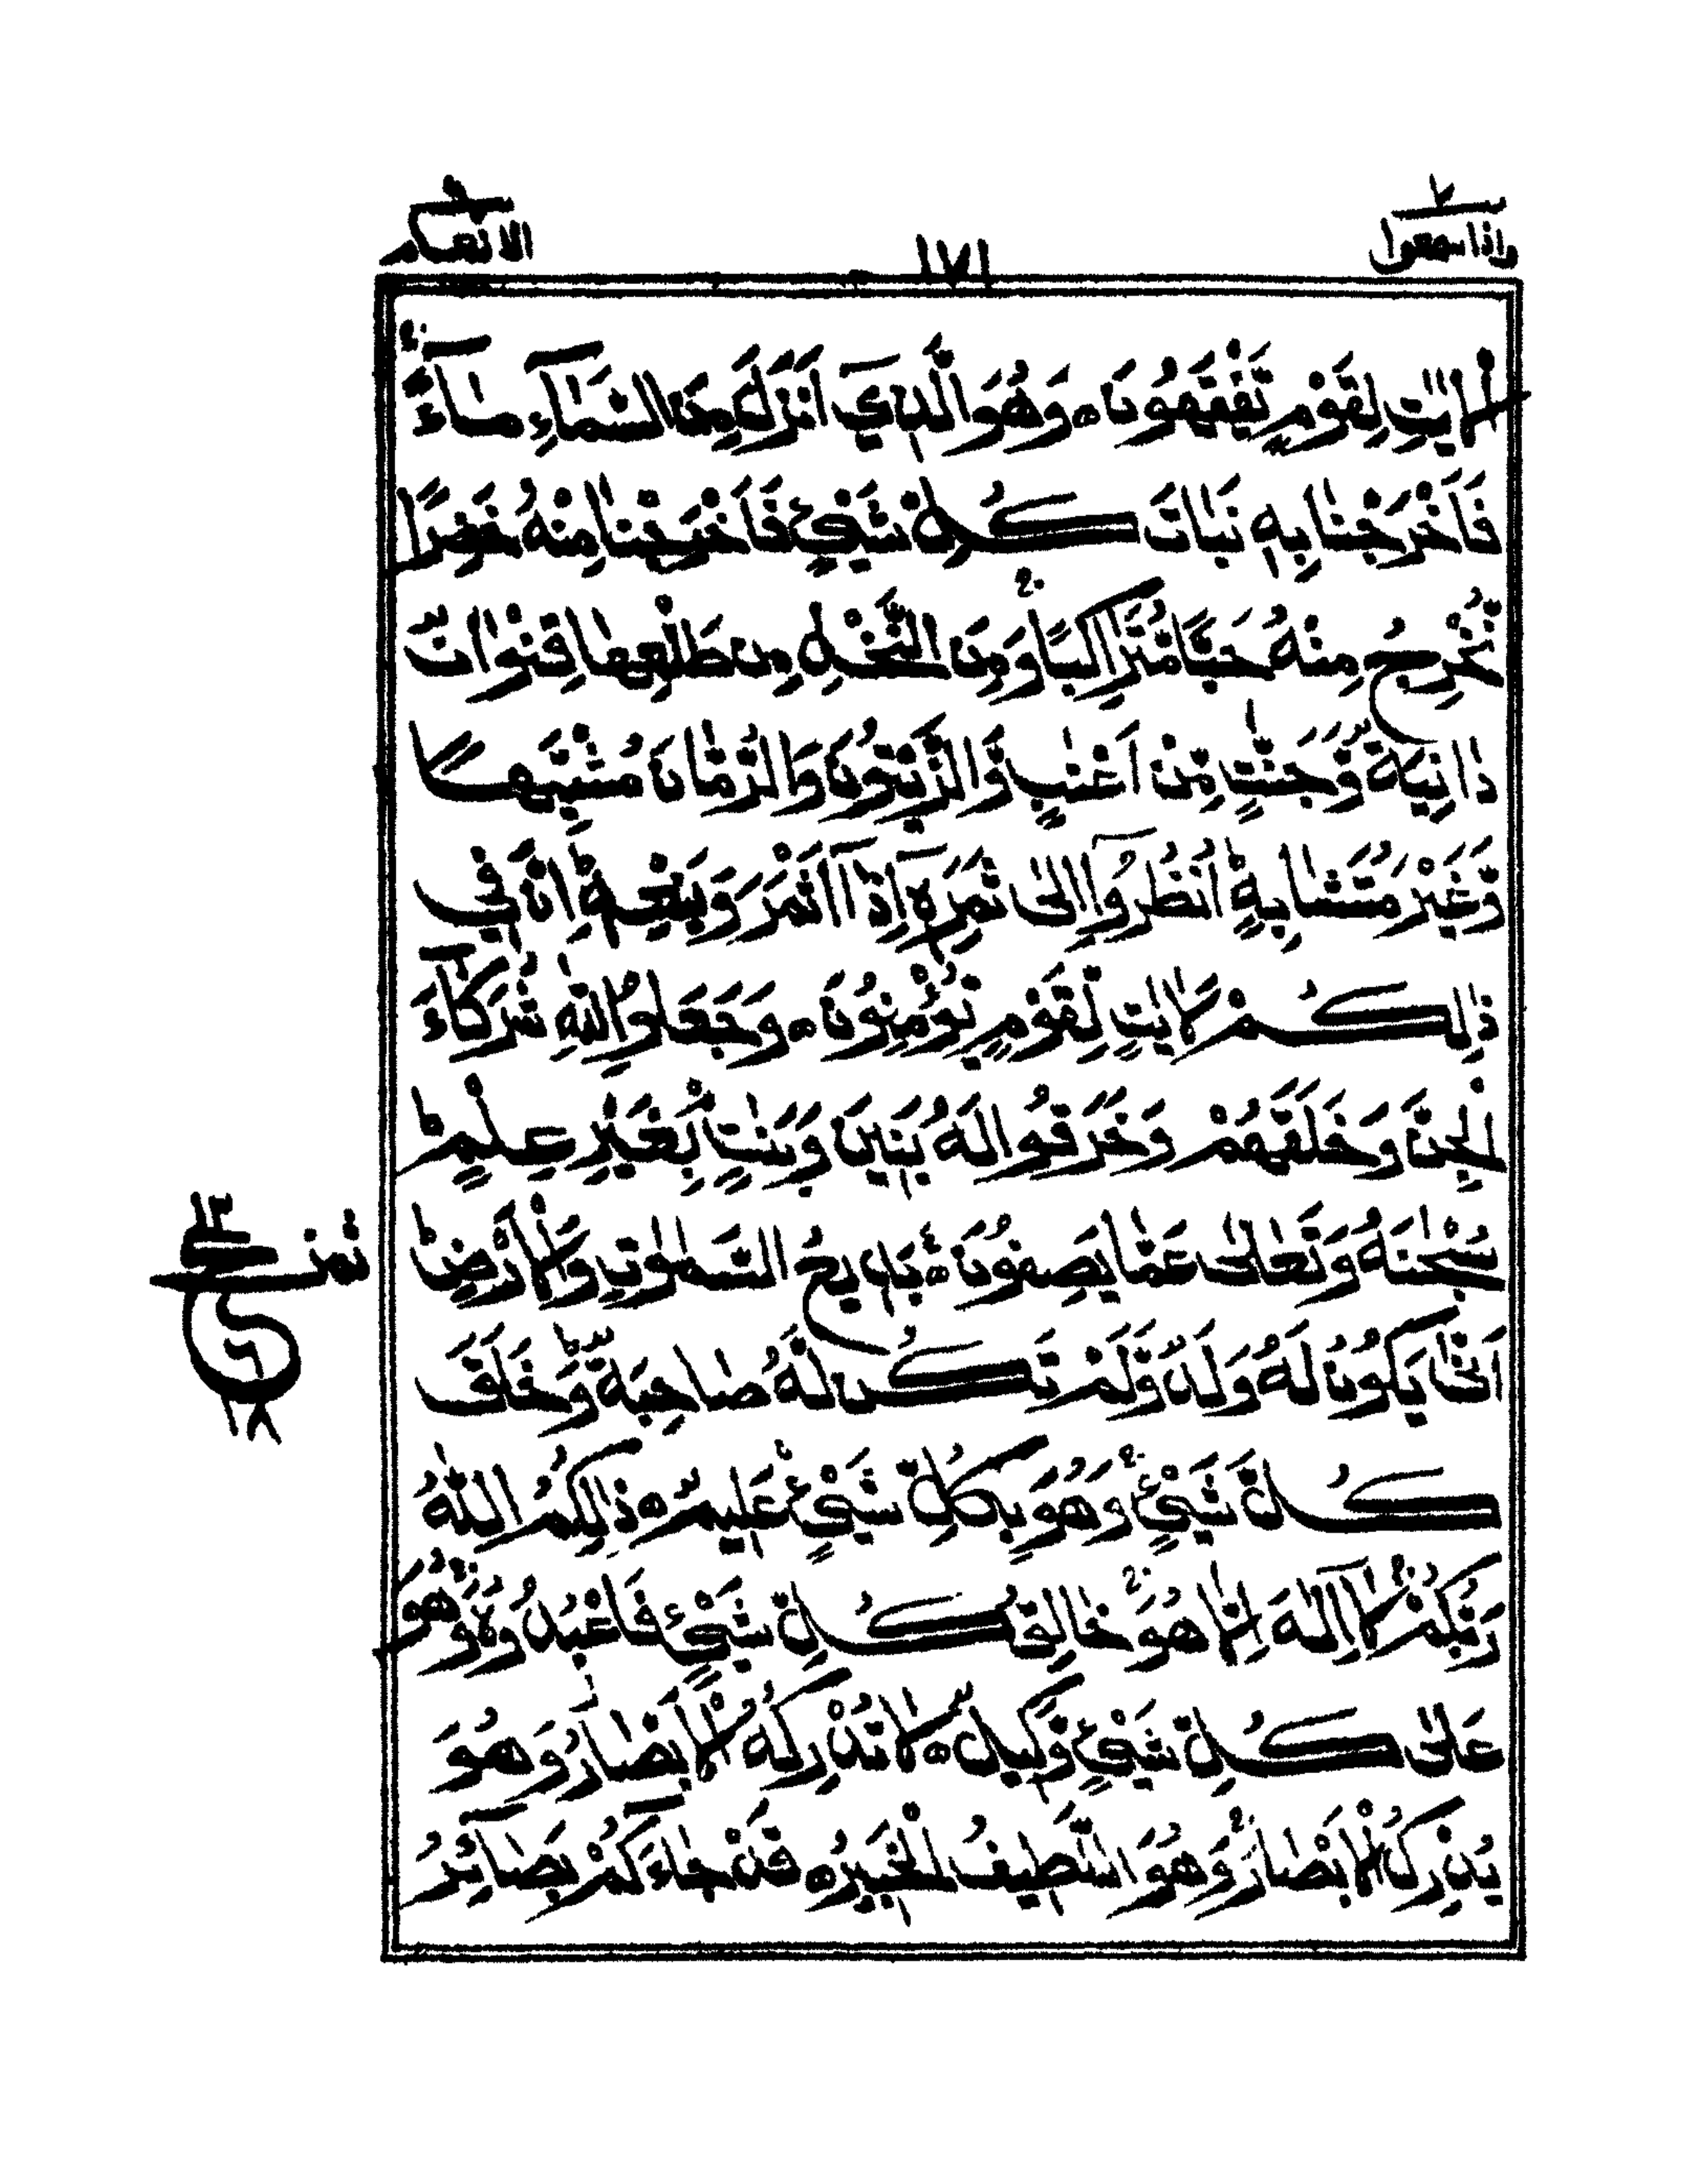 واذا سمعوا ٧
١٧١
الانعام ٦
الْاٰيٰتِ لِقَوْمٍ يَّفْقَهُوْنَ ۝ وَهُوَ الَّذِيْٓ اَنْزَلَ مِنَ السَّمَآءِ مَآءً ۚ
فَاَخْرَجْنَا بِهٖ نَبَاتَ كُلِّ شَيْءٍ فَاَخْرَجْنَا مِنْهُ خَضِرًا
نُّخْرِجُ مِنْهُ حَبًّا مُّتَرَاكِبًا ۚ وَمِنَ النَّخْلِ مِنْ طَلْعِهَا قِنْوَانٌ
دَانِيَةٌ وَّجَنّٰتٍ مِّنْ اَعْنَابٍ وَّالزَّيْتُوْنَ وَالرُّمَّانَ مُشْتَبِهًا
وَّغَيْرَ مُتَشَابِهٍ ؕ اُنْظُرُوْٓا اِلٰى ثَمَرِهٖٓ اِذَآ اَثْمَرَ وَيَنْعِهٖ ؕ اِنَّ فِيْ
ذٰلِكُمْ لَاٰيٰتٍ لِّقَوْمٍ يُّؤْمِنُوْنَ ۝ وَجَعَلُوْا لِلّٰهِ شُرَكَآءَ
الْجِنَّ وَخَلَقَهُمْ وَخَرَقُوْا لَهٗ بَنِيْنَ وَبَنٰتٍۭ بِغَيْرِ عِلْمٍ ؕ
سُبْحٰنَهٗ وَتَعٰلٰى عَمَّا يَصِفُوْنَ ۝ بَدِيْعُ السَّمٰوٰتِ وَالْاَرْضِ ؕ
ثمن ١٣
ع ٦ ١٨
اَنّٰى يَكُوْنُ لَهٗ وَلَدٌ وَّلَمْ تَكُنْ لَّهٗ صَاحِبَةٌ ؕ وَخَلَقَ
كُلَّ شَيْءٍ ۚ وَهُوَ بِكُلِّ شَيْءٍ عَلِيْمٌ ۝ ذٰلِكُمُ اللّٰهُ
رَبُّكُمْ ۚ لَآ اِلٰهَ اِلَّا هُوَ ۚ خَالِقُ كُلِّ شَيْءٍ فَاعْبُدُوْهُ ۚ وَهُوَ
عَلٰى كُلِّ شَيْءٍ وَّكِيْلٌ ۝ لَا تُدْرِكُهُ الْاَبْصَارُ ز وَهُوَ
يُدْرِكُ الْاَبْصَارَ ۚ وَهُوَ اللَّطِيْفُ الْخَبِيْرُ ۝ قَدْ جَآءَكُمْ بَصَآئِرُ